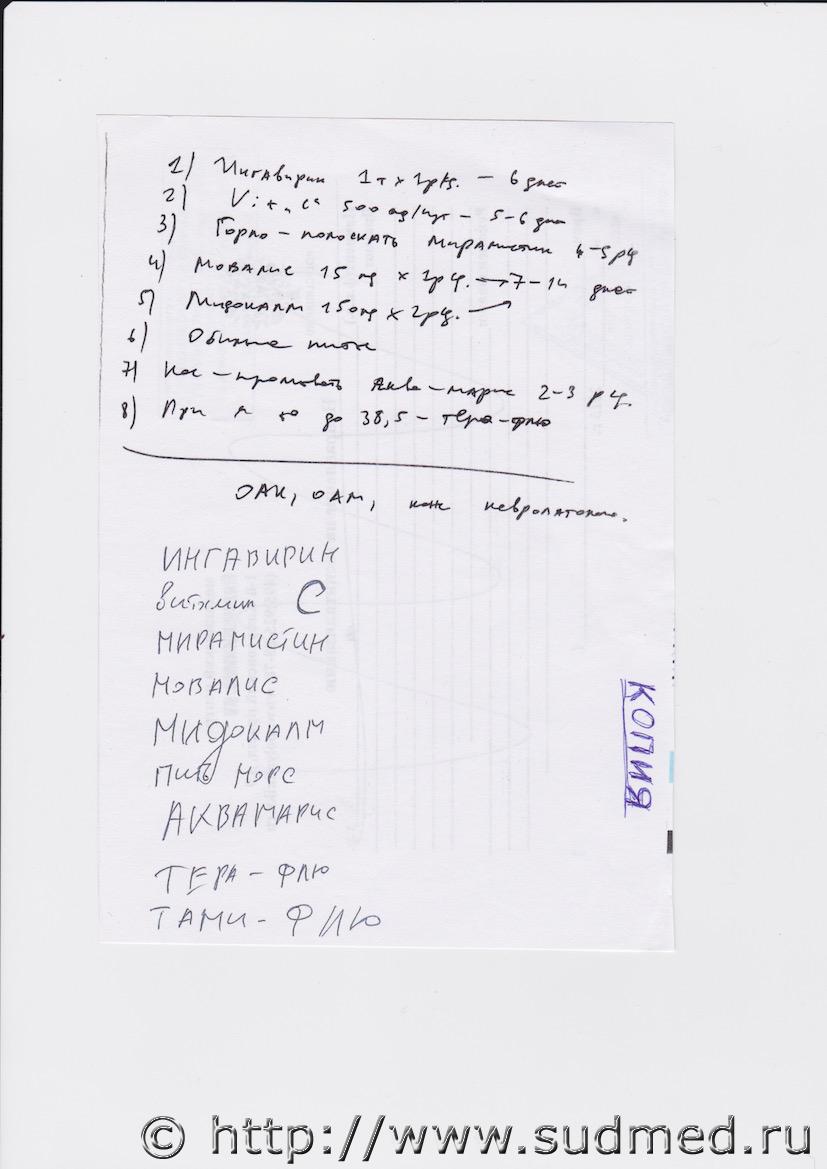 1) Ингавирин 1т х 1р/д. – 6 дней
2) Vit „C“ 500 mg/сут – 5-6 дн
3) Горло – полоскать Мирамистин 4-5 р/д
4) Мовалис 15 mg х 1р/д. → 7-14 дней
5) Мидокалм 150 mg х 2р/д.
6) Обильное питье
7) Нос – промывать Аква-марис 2-3 р/д.
8) При t° до 38,5 – тера-флю
ОАК, ОАМ, невропатолога.
ИНГАВИРИН
Витамин С
МИРАМИСТИН
МОВАЛИС
МИДОКАЛМ
ПИТЬ МОРС
АКВАМАРИС
ТЕРА-ФЛЮ
ТАМИ-ФЛЮ
КОПИЯ
© http://www.sudmed.ru